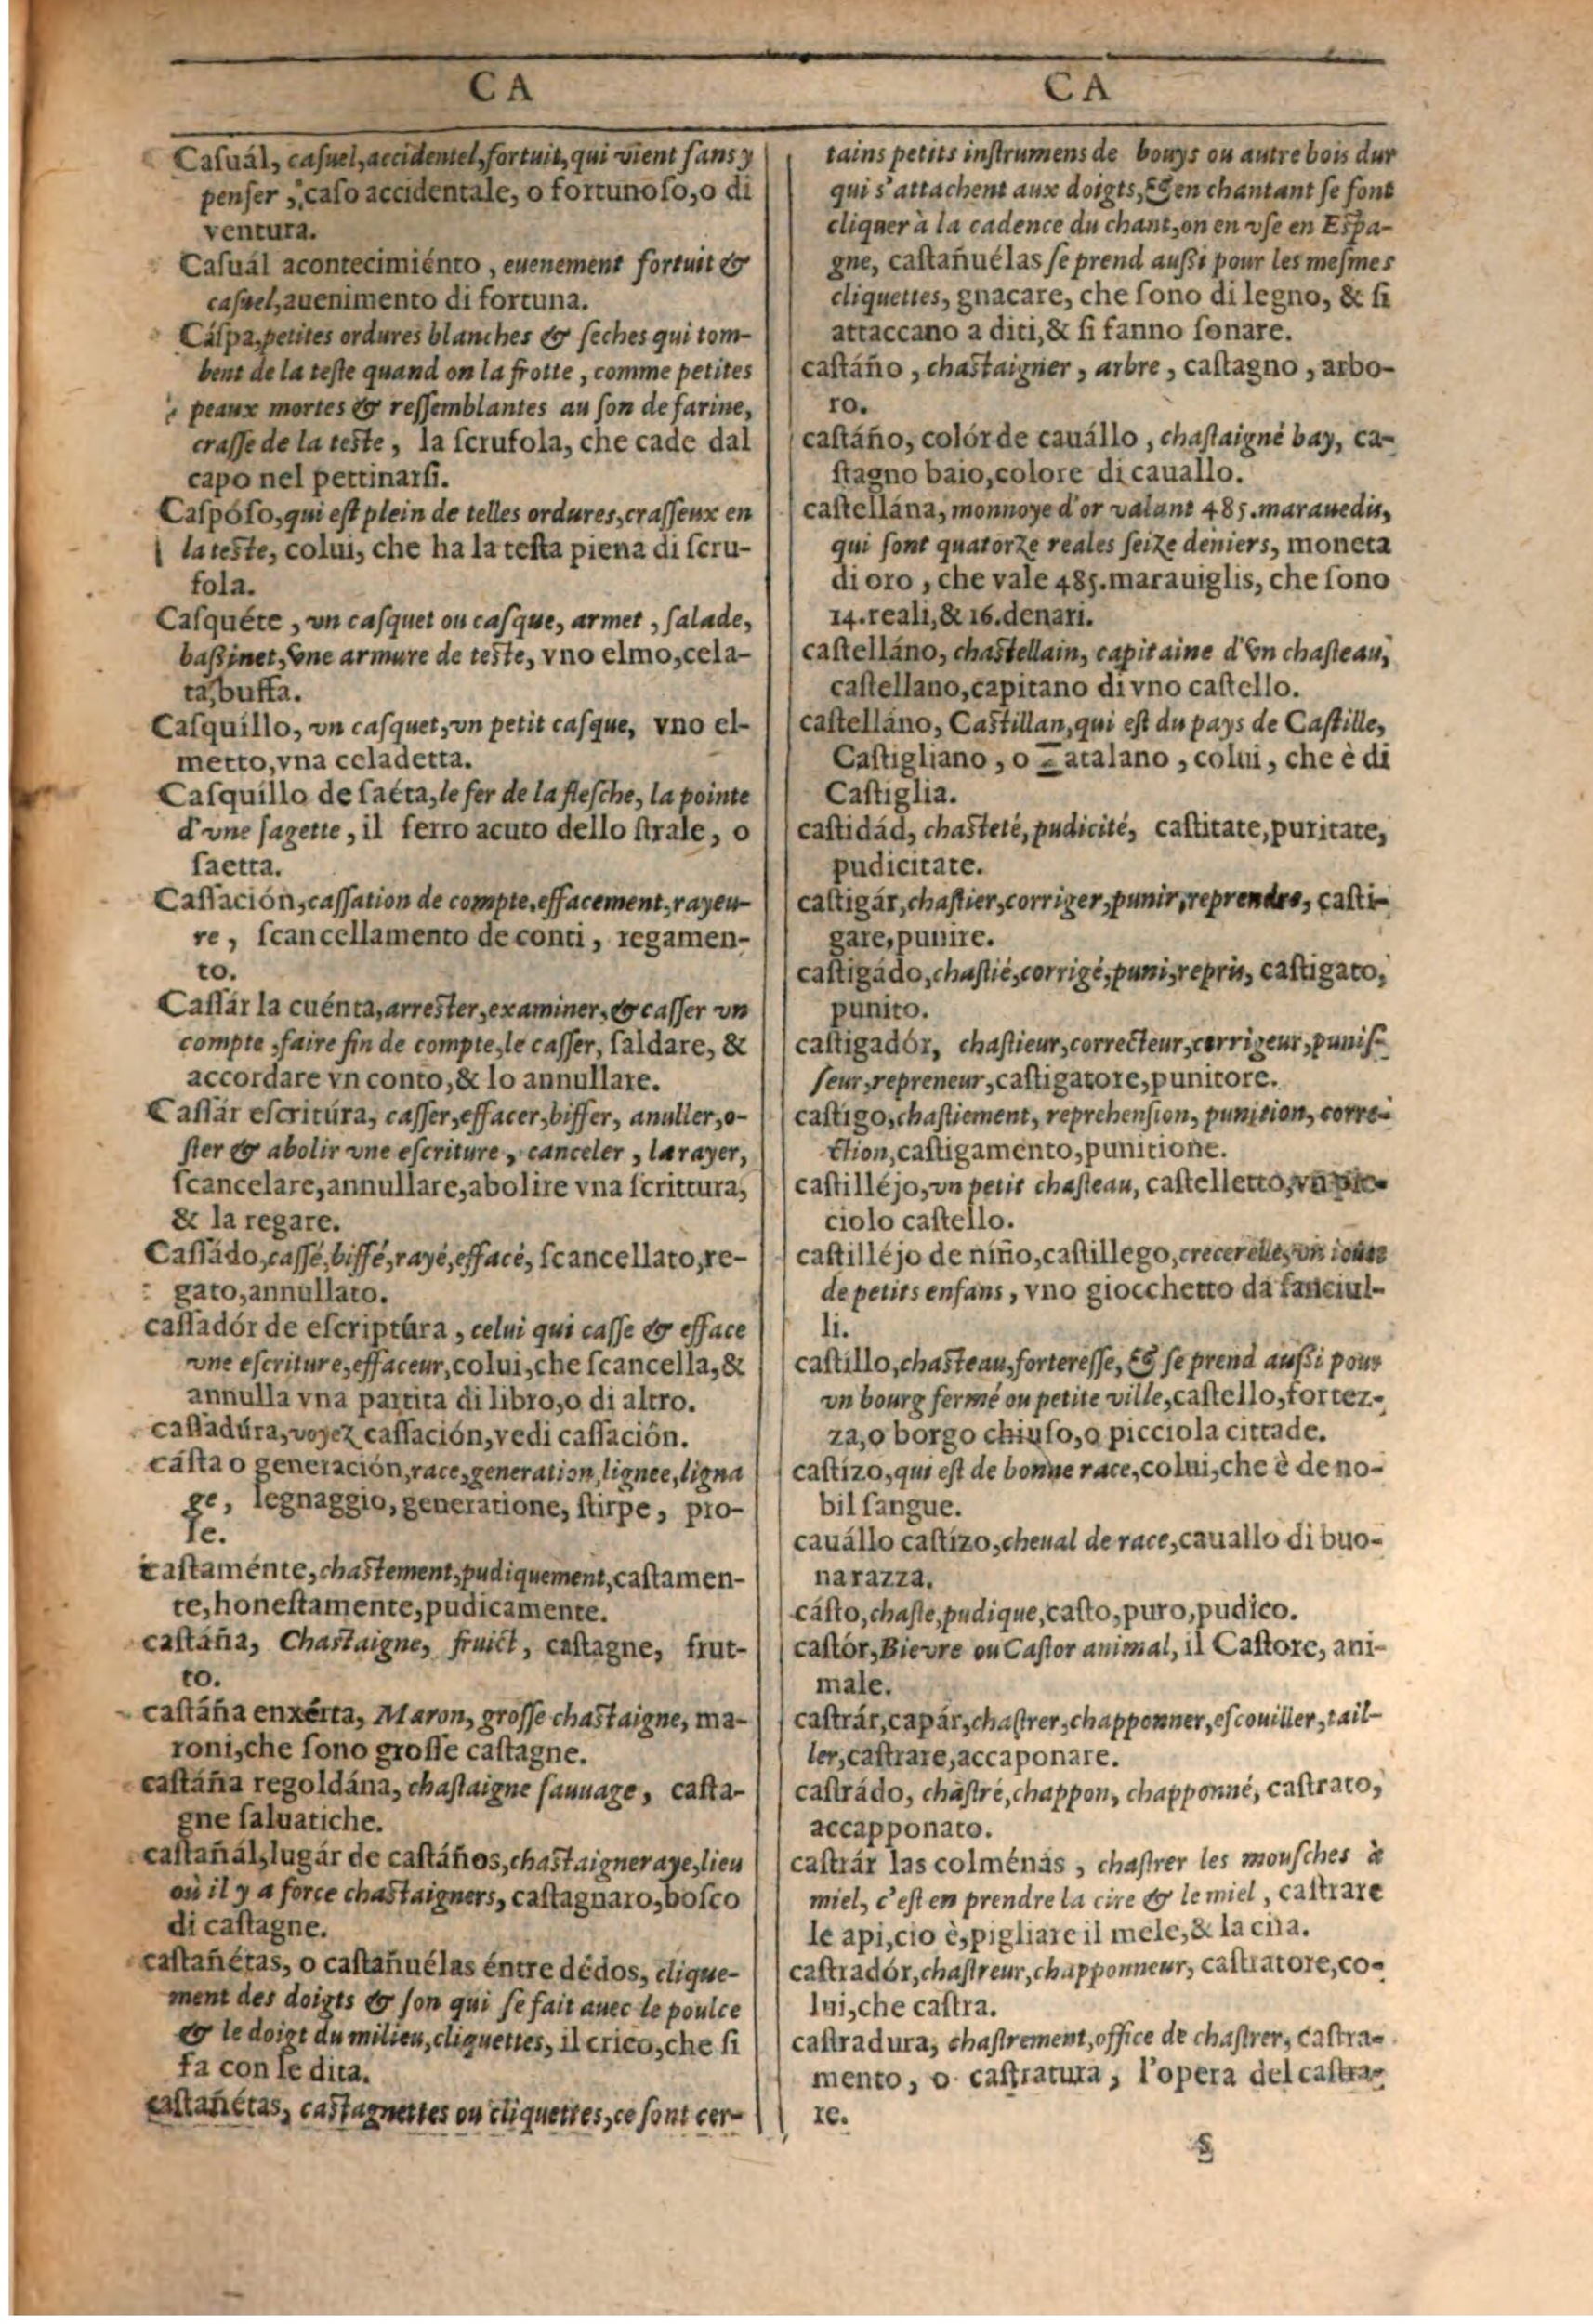 CA
Caſuál, caſuel, accidentel, fortuit, qui vient ſans y
penſer, caſo accidentale, o fortunoſo, o di
ventura.
Caſuál acontecimiénto, euenement fortuit &
caſuel, auenimento di fortuna.
Cáſpa, petites ordures blanches & ſeches qui tom-
bent de la teſte quand on la frotte, comme petites
peaux mortes & reſſemblantes au ſon de farine,
craſſe de la teſte, la ſcrufola, che cade dal
capo nel pettinarſi.
Caſpóſo, qui eſt plein de telles ordures, craſſeux en
la teſte, colui, che ha la teſta piena di ſcru-
fola.
Caſquéte, vn caſquet ou caſque, armet, ſalade,
baſsinet, vne armure de teſte, vno elmo, cela-
ta, buffa.
Caſquíllo, vn caſquet, vn petit caſque, vno el-
metto, vna celadetta.
Caſquíllo de ſaéta, le fer de la fleſche, la pointe
d'vne ſagette, il ferro acuto dello ſtrale, o
ſaetta.
Caſſación, caſſation de compte, effacement, rayeu-
re, ſcancellamento de conti, regamen-
to.
Caſſár la cuénta, arreſter, examiner, & caſſer vn
compte, faire fin de compte, le caſſer, ſaldare, &
accordare vn conto, & lo annullare.
Caſſár eſcritúra, caſſer, effacer, biffer, anuller, o-
ſter & abolir vne eſcriture, canceler, la rayer,
ſcancelare, annullare, abolire vna ſcrittura,
& la regare.
Caſſádo, caſſé, biffé, rayé, effacé, ſcancellato, re-
gato, annullato.
caſſadór de eſcriptúra, celui qui caſſe & efface
vne eſcriture, effaceur, colui, che ſcancella, &
annulla vna partita di libro, o di altro.
caſſadúra, voyez caſſación, vedi caſſaciôn.
cáſta o generación, race, generation, lignee, ligna
ge, legnaggio, generatione, ſtirpe, pro-
le.
caſtaménte, chaſtement, pudiquement, caſtamen-
te, honeſtamente, pudicamente.
caſtáña, Chaſtaigne, fruict, caſtagne, frut-
to.
caſtáña enxérta, Maron, groſſe chaſtaigne, ma-
roni, che ſono groſſe caſtagne.
caſtáña regoldána, chaſtaigne ſauuage, caſta-
gne ſaluatiche.
caſtañál, lugár de caſtáños, chaſtaigneraye, lieu
où il y a force chaſtaigners, caſtagnaro, boſco
di caſtagne.
caſtañétas, o caſtañuélas éntre dédos, clique-
ment des doigts & ſon qui ſe fait auec le poulce
& le doigt du milieu, cliquettes, il crico, che ſi
fa con le dita.
caſtañétas, caſtagnettes ou cliquettes, ce ſont cer-
CA
tains petits inſtrumens de bouys ou autre bois dur
qui s'attachent aux doigts, & en chantant ſe font
cliquer à la cadence du chant, on en vſe en Eſpa-
gne, caſtañuélas ſe prend auſsi pour les meſmes
cliquettes, gnacare, che ſono di legno, & ſi
attaccano a diti, & ſi fanno ſonare.
caſtáño, chaſtaigner, arbre, caſtagno, arbo-
ro.
caſtáño, colór de cauállo, chaſtaigné bay, ca-
ſtagno baio, colore di cauallo.
caſtellána, monnoye d'or valant 485. marauedis,
qui ſont quatorze reales ſeize deniers, moneta
di oro, che vale 485. marauiglis, che ſono
14. reali, & 16. denari.
caſtelláno, chaſtellain, capitaine d'vn chaſteau,
caſtellano, capitano di vno caſtello.
caſtelláno, Caſtillan, qui eſt du pays de Caſtille,
Caſtigliano, o Catalano, colui, che è di
Caſtiglia.
caſtidád, chaſteté, pudicité, caſtitate, puritate,
pudicitate.
caſtigár, chaſtier, corriger, punir, reprendre, caſti-
gare, punire.
caſtigádo, chaſtié, corrigé, puni, repris, caſtigato,
punito.
caſtigadór, chaſtieur, correcteur, corrigeur, puniſ-
ſeur, repreneur, caſtigatore, punitore.
caſtigo, chaſtiement, reprehenſion, punition, corre-
ction, caſtigamento, punitione.
caſtilléjo, vn petit chaſteau, caſtelletto, vn pic-
ciolo caſtello.
caſtilléjo de níño, caſtillego, crecerelle, vn iouet
de petits enfans, vno giocchetto da fanciul-
li.
caſtillo, chaſteau, fortereſſe, & ſe prend auſsi pour
vn bourg fermé ou petite ville, caſtello, fortez-
za, o borgo chiuſo, o picciola cittade.
caſtízo, qui eſt de bonne race, colui, che è de no-
bil ſangue.
cauállo caſtízo, cheual de race, cauallo di buo-
na razza.
cáſto, chaſte, pudique, caſto, puro, pudico.
caſtór, Bievre ou Caſtor animal, il Caſtore, ani-
male.
caſtrár, capár, chaſtrer, chapponner, eſcouiller, tail-
ler, caſtrare, accaponare.
caſtrádo, chaſtré, chappon, chapponné, caſtrato,
accapponato.
caſtrár las colménas, chaſtrer les mouſches à
miel, c'eſt en prendre la cire & le miel, caſtrare
le api, cio è, pigliare il mele, & la cira.
caſtradór, chaſtreur, chapponneur, caſtratore, co-
lui, che caſtra.
caſtradura, chaſtrement, office de chaſtrer, caſtra-
mento, o caſtratura, l'opera del caſtra-
re.